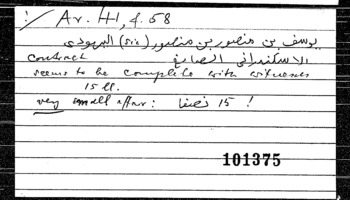 :/ Ar. 41, f. 58
يوسف بن منصور بن منصور (sic) اليهودي
contract الاسكندراني الصايغ
seems to be complete with witnesses
15 ll.
very small affair: 15 نصفا !
101375